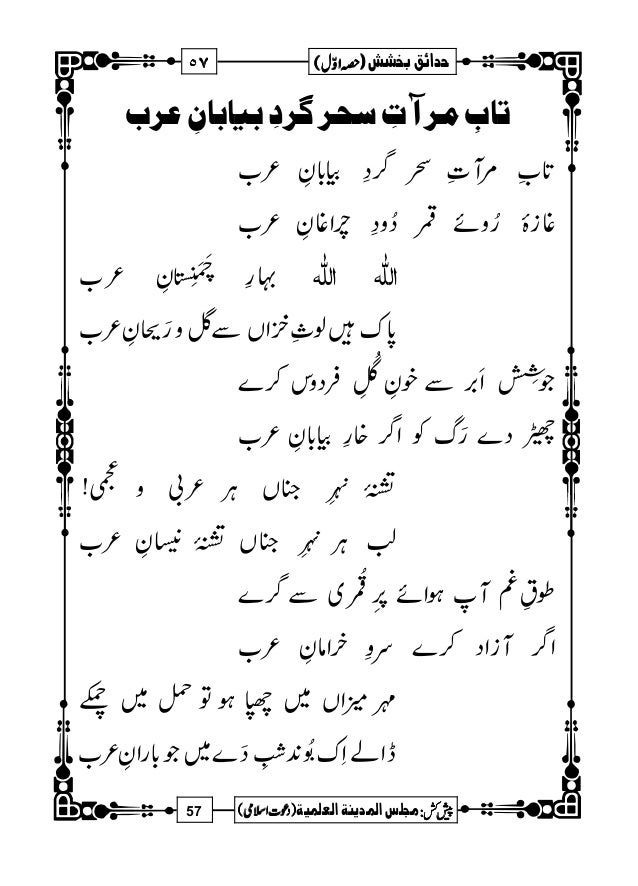 حدائق بخشش (حصہ اوّل)
۵۷
تابِ مرآتِ سحر گردِ بیابانِ عرب
تابِ مرآتِ سحر گردِ بیابانِ عرب
غازۂ رُوئے قمر دُودِ چراغانِ عرب
اللہ اللہ بہارِ چَمَنِستانِ عرب
پاک ہیں لوثِ خزاں سے گل و رَیحانِ عرب
جوشِش اَبر سے خونِ گُلِ فردوس کرے
چھیڑ دے رَگ کو اگر خارِ بیابانِ عرب
تشنۂ نہرِ جناں ہر عربی و عجمی!
لب ہر نہرِ جناں تشنۂ نیسانِ عرب
طوقِ غم آپ ہوائے پرِ قُمری سے گرے
اگر آزاد کرے سروِ خراماںِ عرب
مہر میزاں میں چھپا ہو تو حمل میں چمکے
ڈالے اِک بُوند شبِ دَے میں جو بارانِ عرب
پیش کش: مجلس المدینۃ العلمیۃ (دعوت اسلامی)
57